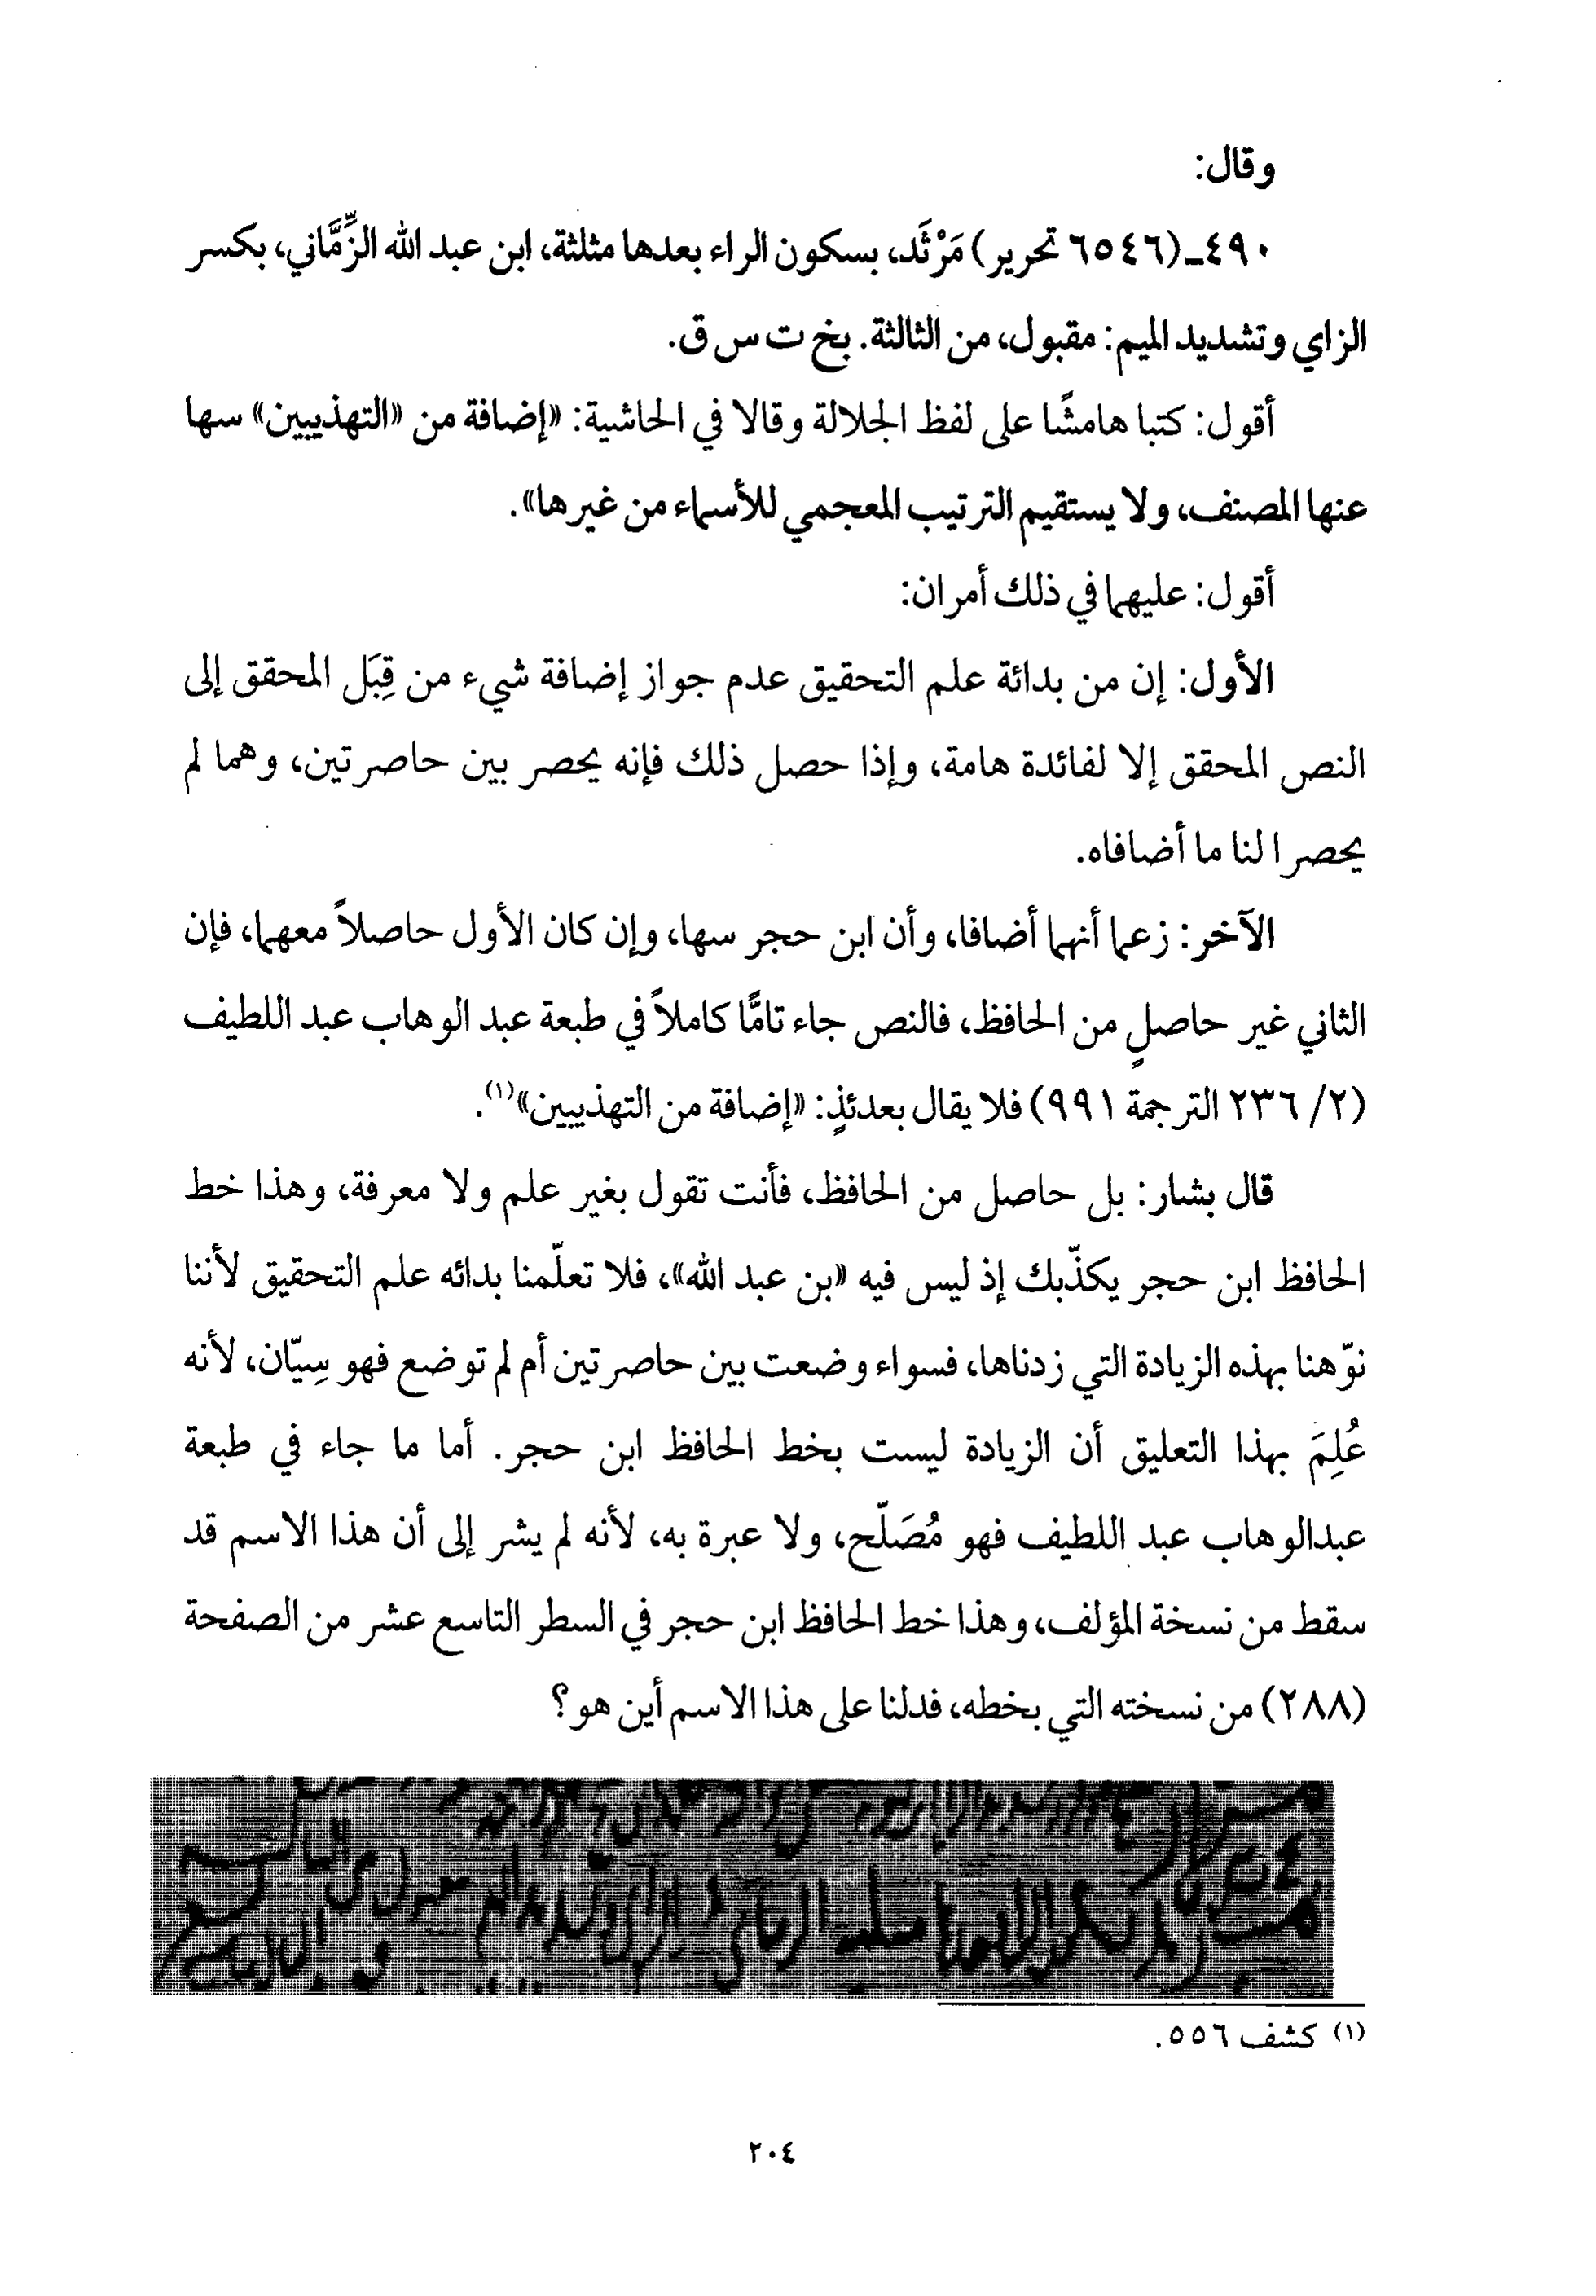 وقال:
٤٩٠ـ (٦٥٤٦ تحرير) مَرْثَد، بسكون الراء بعدها مثلثة، ابن عبد الله الزِّمَّاني، بكسر
الزاي وتشديد الميم: مقبول، من الثالثة. بخ ت س ق.
أقول: كتبا هامشًا على لفظ الجلالة وقالا في الحاشية: «إضافة من «التهذيبين» سها
عنها المصنف، ولا يستقيم الترتيب المعجمي للأسماء من غيرها».
أقول: عليهما في ذلك أمران:
الأول: إن من بدائة علم التحقيق عدم جواز إضافة شيء من قِبَل المحقق إلى
النص المحقق إلا لفائدة هامة، وإذا حصل ذلك فإنه يحصر بين حاصرتين، وهما لم
يحصرا لنا ما أضافاه.
الآخر: زعما أنهما أضافا، وأن ابن حجر سها، وإن كان الأول حاصلاً معهما، فإن
الثاني غير حاصلٍ من الحافظ، فالنص جاء تامًّا كاملاً في طبعة عبد الوهاب عبد اللطيف
(٢/ ٢٣٦ الترجمة ٩٩١) فلا يقال بعدئذٍ: «إضافة من التهذيبين»(١).
قال بشار: بل حاصل من الحافظ، فأنت تقول بغير علم ولا معرفة، وهذا خط
الحافظ ابن حجر يكذّبك إذ ليس فيه «بن عبد الله»، فلا تعلّمنا بدائه علم التحقيق لأننا
نوّهنا بهذه الزيادة التي زدناها، فسواء وضعت بين حاصرتين أم لم توضع فهو سِيّان، لأنه
عُلِمَ بهذا التعليق أن الزيادة ليست بخط الحافظ ابن حجر. أما ما جاء في طبعة
عبدالوهاب عبد اللطيف فهو مُصَلّح، ولا عبرة به، لأنه لم يشر إلى أن هذا الاسم قد
سقط من نسخة المؤلف، وهذا خط الحافظ ابن حجر في السطر التاسع عشر من الصفحة
(٢٨٨) من نسخته التي بخطه، فدلنا على هذا الاسم أين هو؟
(١) كشف ٥٥٦.
٢٠٤